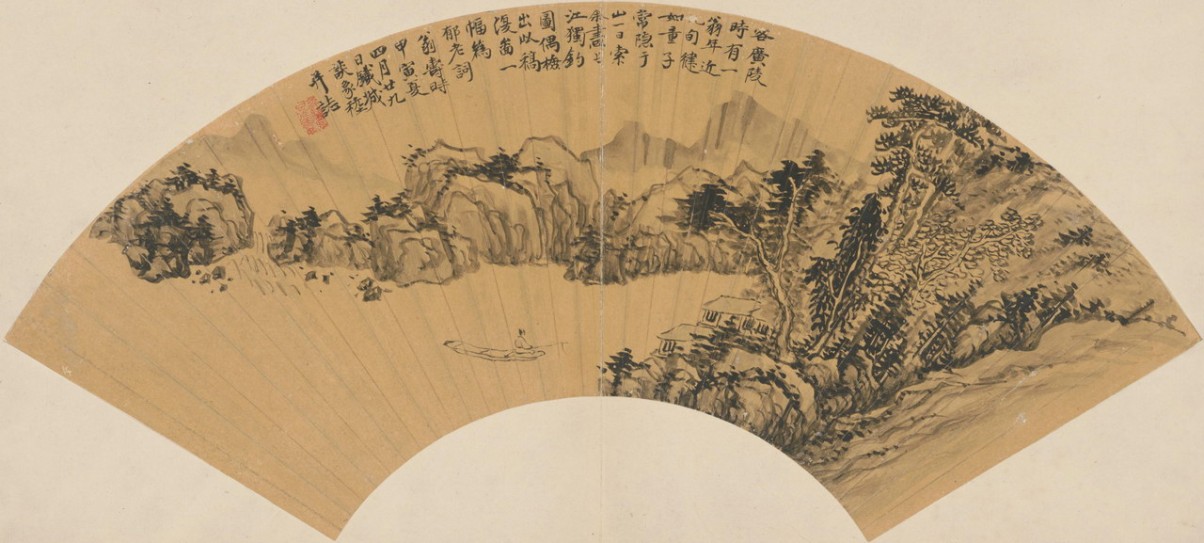 客廣陵
時有一
翁年近
九旬健
如童子
常隱于
山一日索
余畫
江獨釣
圖偶檢
出以稿
漫圖一
幅為
郁老詞
翁壽時
甲寅夏
四月廿九
日臘
并誌